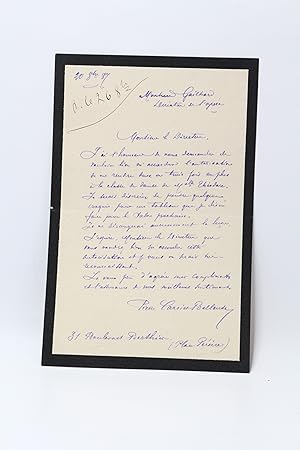 20 8bre 97
Monsieur Gailhard
Directeur de l'opéra
Monsieur le Directeur,
J'ai l'honneur de vous demander de
vouloir bien m'accorder l'autorisation
de me rendre deux ou trois fois en plus
à la classe de danse de Melle Théodore.
Je serais désireux de prendre quelques
croquis pour un tableau que je désire
faire pour le Salon prochain.
Je ne dérangerai aucunement la leçon.
J'espère, Monsieur le Directeur que
vous voudrez bien m'accorder cette
autorisation et je vous en serais bien
reconnaissant.
Je vous prie d'agréer mes compliments
et l'assurance de mes meilleurs sentiments
Pierre Carrier-Belleuse
31 Boulevard Berthier
(Place Pereire)